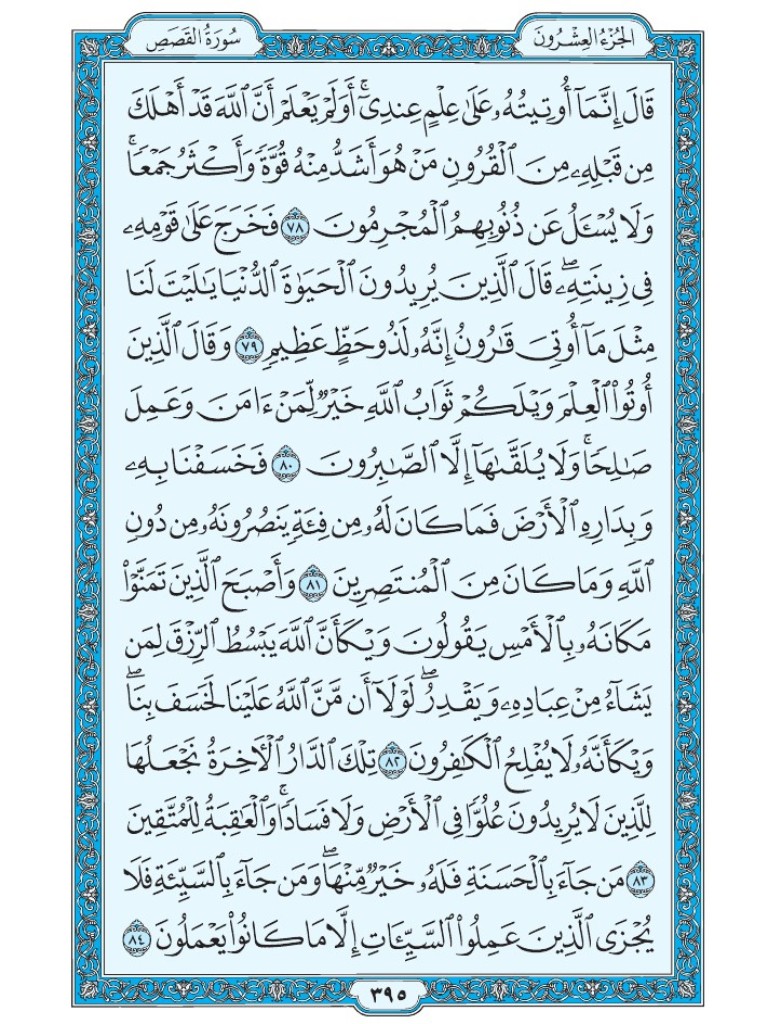 الجُزْءُ العِشْرُونَ
سُورَةُ القَصَصِ
قَالَ إِنَّمَآ أُوتِيتُهُۥ عَلَىٰ عِلْمٍ عِندِيٓۚ أَوَلَمْ يَعْلَمْ أَنَّ ٱللَّهَ قَدْ أَهْلَكَ
مِن قَبْلِهِۦ مِنَ ٱلْقُرُونِ مَنْ هُوَ أَشَدُّ مِنْهُ قُوَّةً وَأَكْثَرُ جَمْعًاۚ
وَلَا يُسْـَٔلُ عَن ذُنُوبِهِمُ ٱلْمُجْرِمُونَ ٧٨ فَخَرَجَ عَلَىٰ قَوْمِهِۦ
فِي زِينَتِهِۦۖ قَالَ ٱلَّذِينَ يُرِيدُونَ ٱلْحَيَوٰةَ ٱلدُّنْيَا يَـٰلَيْتَ لَنَا
مِثْلَ مَآ أُوتِيَ قَـٰرُونُ إِنَّهُۥ لَذُو حَظٍّ عَظِيمٍ ٧٩ وَقَالَ ٱلَّذِينَ
أُوتُوا۟ ٱلْعِلْمَ وَيْلَكُمْ ثَوَابُ ٱللَّهِ خَيْرٌ لِّمَنْ ءَامَنَ وَعَمِلَ
صَـٰلِحًاۚ وَلَا يُلَقَّىٰهَآ إِلَّا ٱلصَّـٰبِرُونَ ٨٠ فَخَسَفْنَا بِهِۦ
وَبِدَارِهِ ٱلْأَرْضَ فَمَا كَانَ لَهُۥ مِن فِئَةٍ يَنصُرُونَهُۥ مِن دُونِ
ٱللَّهِ وَمَا كَانَ مِنَ ٱلْمُنتَصِرِينَ ٨١ وَأَصْبَحَ ٱلَّذِينَ تَمَنَّوْا۟
مَكَانَهُۥ بِٱلْأَمْسِ يَقُولُونَ وَيْكَأَنَّ ٱللَّهَ يَبْسُطُ ٱلرِّزْقَ لِمَن
يَشَآءُ مِنْ عِبَادِهِۦ وَيَقْدِرُۖ لَوْلَآ أَن مَّنَّ ٱللَّهُ عَلَيْنَا لَخَسَفَ بِنَاۖ
وَيْكَأَنَّهُۥ لَا يُفْلِحُ ٱلْكَـٰفِرُونَ ٨٢ تِلْكَ ٱلدَّارُ ٱلْـَٔاخِرَةُ نَجْعَلُهَا
لِلَّذِينَ لَا يُرِيدُونَ عُلُوًّا فِي ٱلْأَرْضِ وَلَا فَسَادًاۚ وَٱلْعَـٰقِبَةُ لِلْمُتَّقِينَ
٨٣ مَن جَآءَ بِٱلْحَسَنَةِ فَلَهُۥ خَيْرٌ مِّنْهَاۖ وَمَن جَآءَ بِٱلسَّيِّئَةِ فَلَا
يُجْزَى ٱلَّذِينَ عَمِلُوا۟ ٱلسَّيِّـَٔاتِ إِلَّا مَا كَانُوا۟ يَعْمَلُونَ ٨٤
٣٩٥